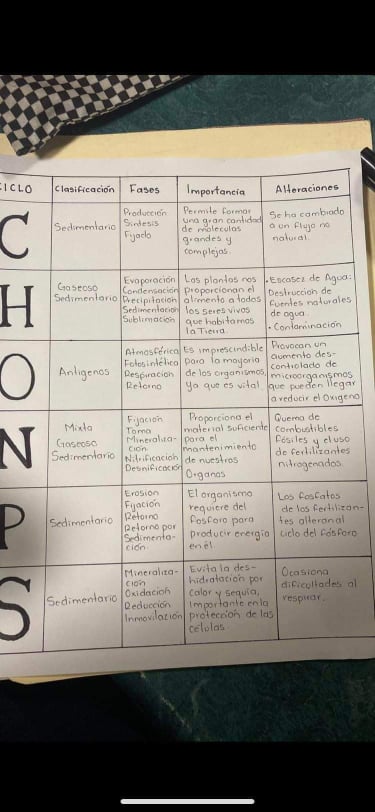 CICLO
Clasificación
Fases
Importancia
Alteraciones
C
Sedimentario
Producción
Sintesis
Fijado
Permite formar
una gran cantidad
de moleculas
grandes y
complejas.
Se ha cambiado
a un flujo no
natural.
H
Gaseoso
Sedimentario
Evaporación
Condensación
Precipitación
Sedimentación
Sublimación
Las plantas nos
proporcionan el
alimento a todos
los seres vivos
que habitamos
la Tierra.
• Escasez de Agua:
Destruccion de
fuentes naturales
de agua.
• Contaminación
O
Antigenos
Atmosférica
Fotosintética
Respiración
Retorno
Es imprescindible
para la mayoría
de los organismos,
Ya que es vital.
Provocan un
aumento des-
controlado de
microorganismos
que pueden llegar
a reducir el Oxigeno
N
Mixta
Gaseoso
Sedimentario
Fijación
Toma
Mineraliza-
ción
Nitrificación
Desnificación
Proporciona el
material suficiente
para el
mantenimiento
de nuestros
Organos
Quema de
combustibles
fósiles y el uso
de fertilizantes
nitrogenados.
P
Sedimentario
Erosion
Fijación
Retorno
Retorno por
Sedimenta-
ción.
El organismo
requiere del
fosforo para
producir energía
en él.
Los fosfatos
de los fertilizan-
tes alteran al
ciclo del fósforo
S
Sedimentario
Mineraliza-
ción
Oxidación
Reducción
Inmovilación
Evita la des-
hidratación por
calor y sequía,
Importante en la
protección de las
células.
Ocasiona
dificultades al
respirar.